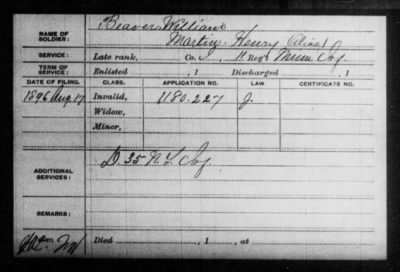 Beaver, William
NAME OF SOLDIER: Martin, Henry (Alias)
SERVICE: Late rank, Co. , 11 Reg't Minn Inf.
TERM OF SERVICE: Enlisted , 1 Discharged , 1
DATE OF FILING. CLASS. APPLICATION NO. LAW CERTIFICATE NO.
1896 Aug 17 Invalid, 1180.227 J.
Widow,
Minor,
ADDITIONAL SERVICES: D. 35 N.J. Inf
REMARKS:
Died , 1 , at